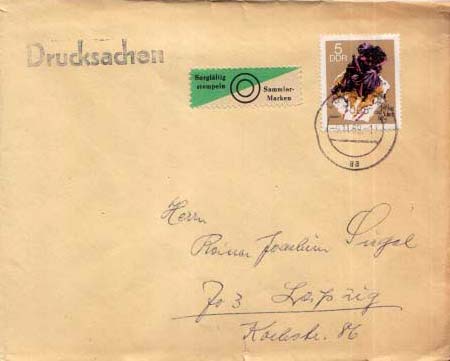 Drucksachen
Sorgfältig
stempeln
Sammler-
Marken
5
DDR
Herrn
Rainer Joachim
703 Leipzig
86